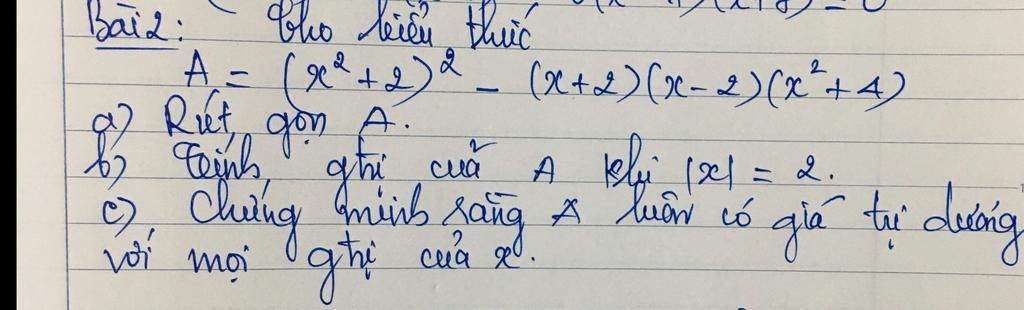 Bài 2: Cho biểu thức
A = (x² + 2)² - (x+2)(x-2)(x² + 4)
a) Rút gọn A.
b) Tính gtrị của A khi |x| = 2.
c) Chứng minh rằng A luôn có giá trị dương
với mọi gtrị của x.